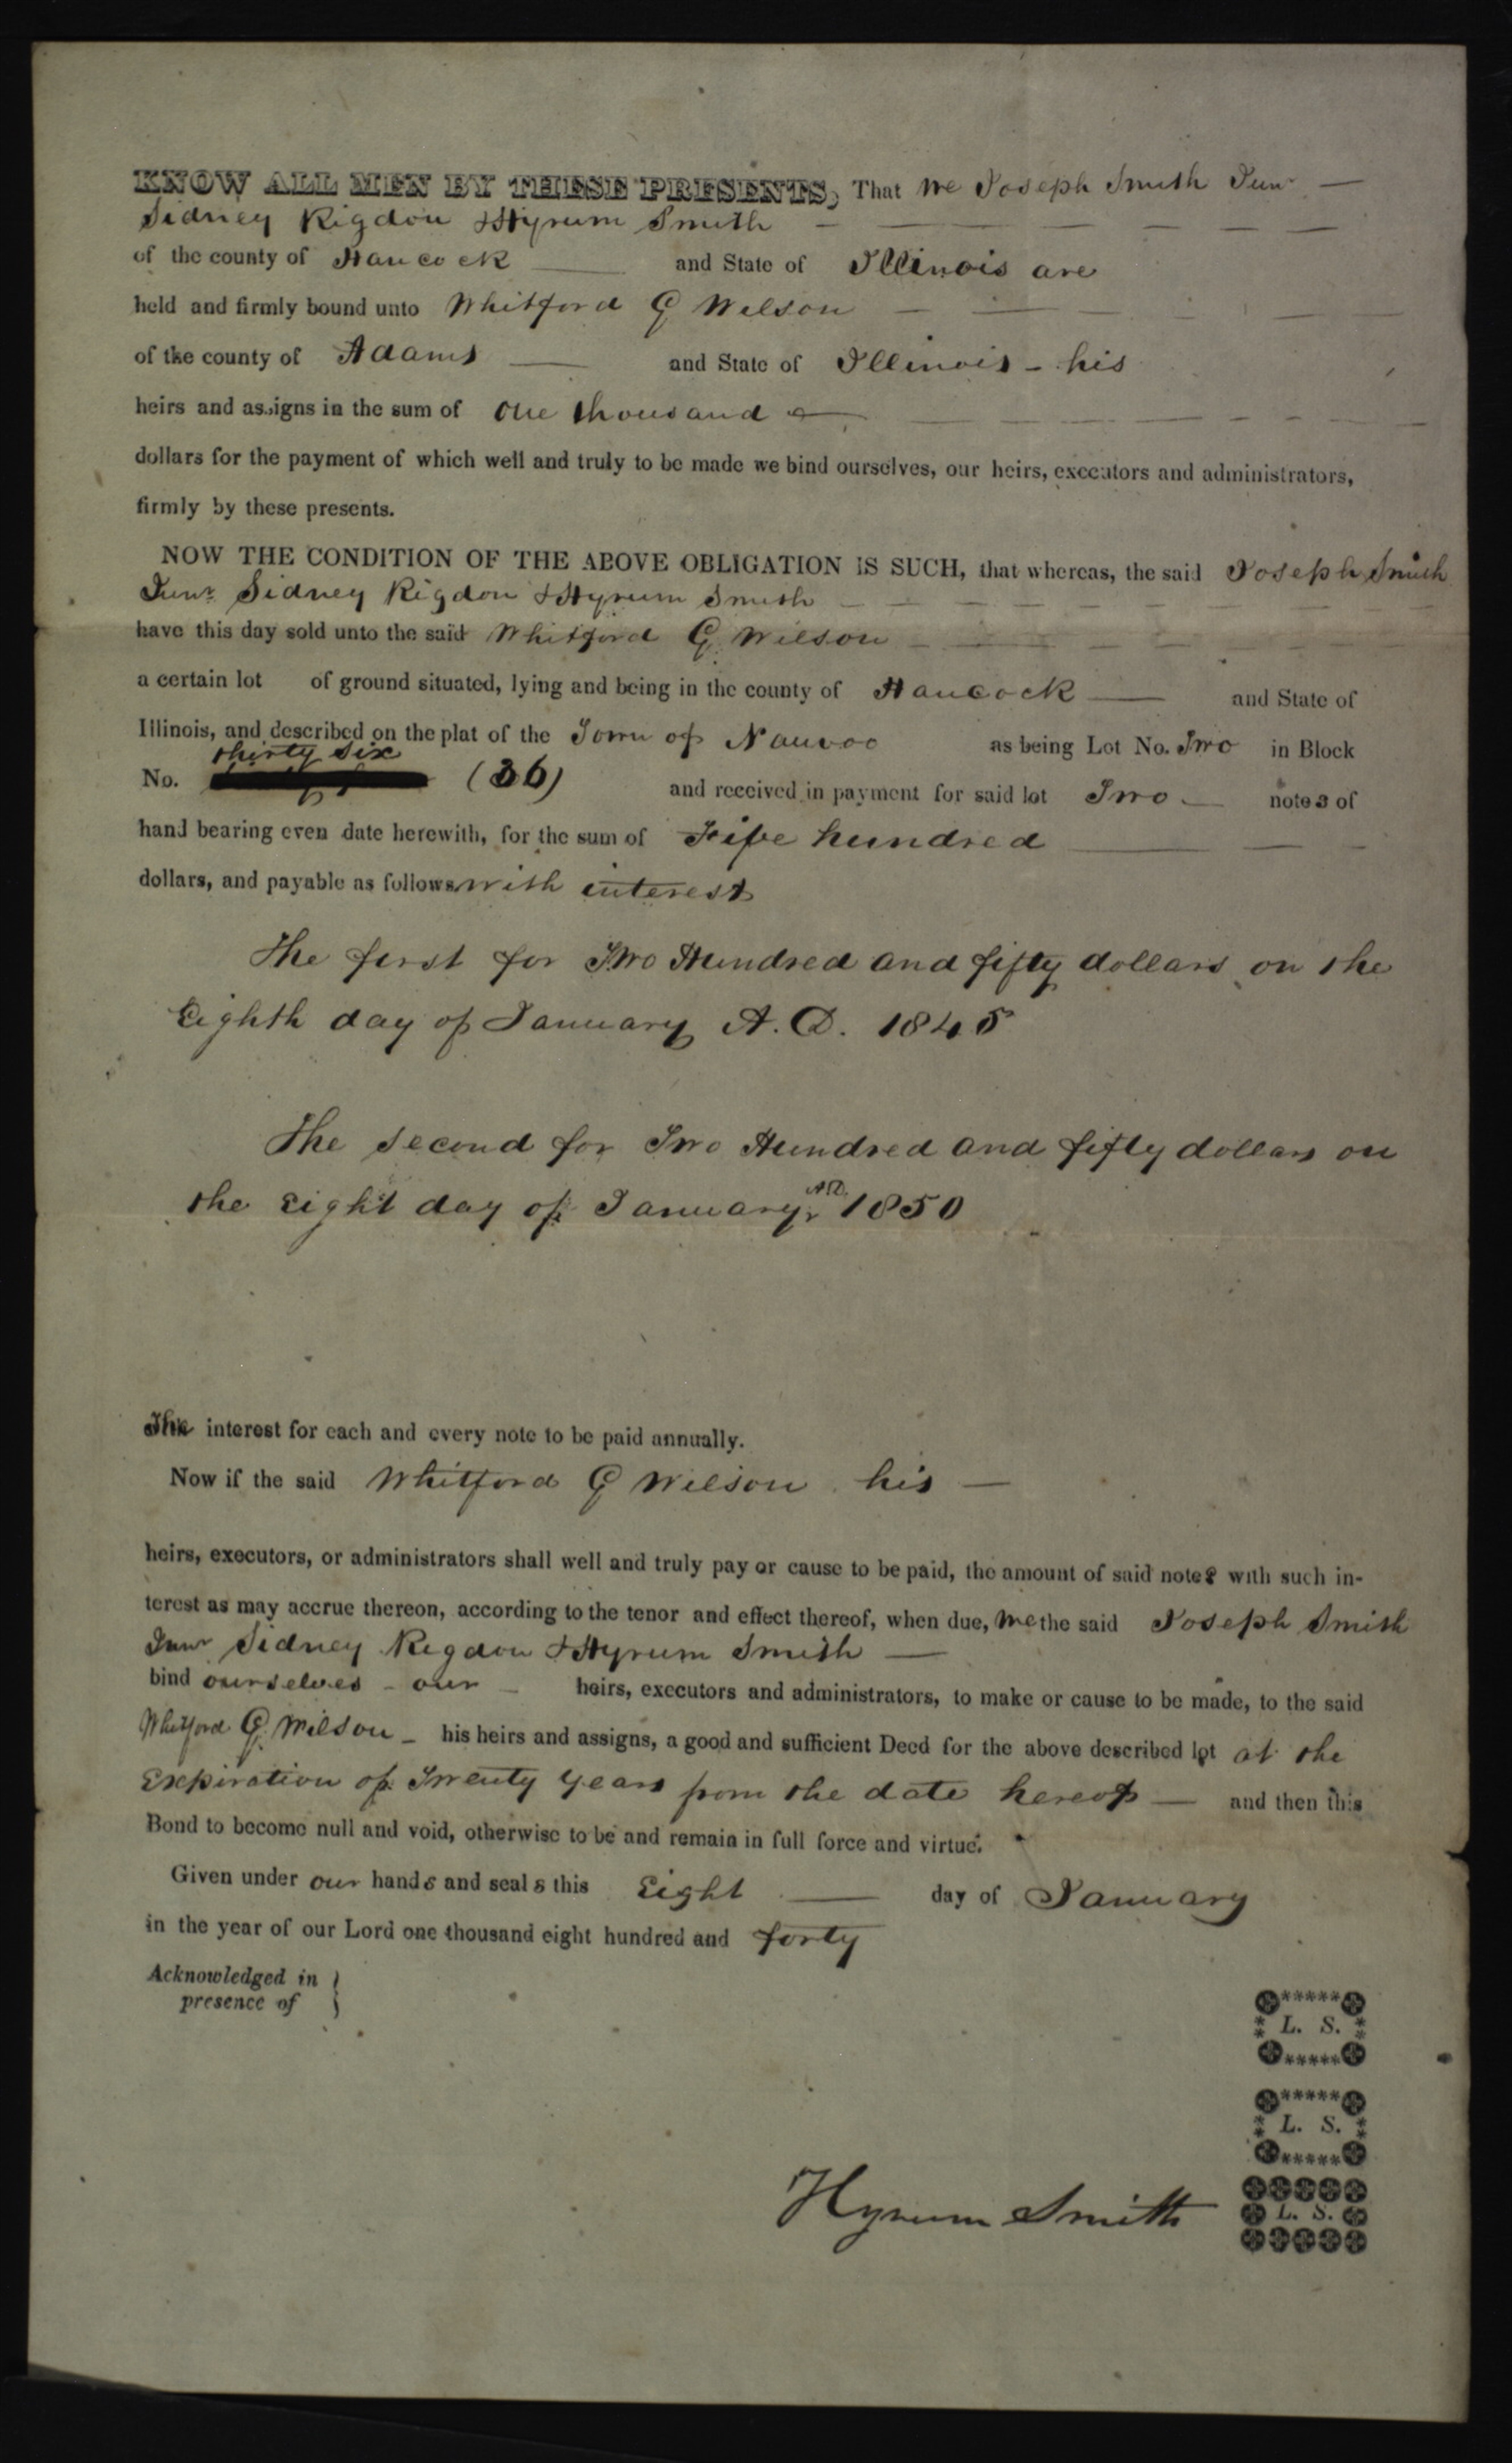 KNOW ALL MEN BY THESE PRESENTS, That we Joseph Smith Junr —
Sidney Rigdon & Hyrum Smith —
of the county of Hancock — and State of Illinois are
held and firmly bound unto Whitford G Wilson —
of the county of Adams — and State of Illinois - his
heirs and assigns in the sum of One thousand —
dollars for the payment of which well and truly to be made we bind ourselves, our heirs, executors and administrators,
firmly by these presents.
NOW THE CONDITION OF THE ABOVE OBLIGATION IS SUCH, that whereas, the said Joseph Smith
Junr Sidney Rigdon & Hyrum Smith —
have this day sold unto the said Whitford G. Wilson —
a certain lot of ground situated, lying and being in the county of Hancock — and State of
Illinois, and described on the plat of the Town of Nauvoo as being Lot No. Two in Block
thirty six
No. (36) and received in payment for said lot Two — notes of
hand bearing even date herewith, for the sum of Five hundred —
dollars, and payable as follows with interest
The first for Two Hundred and fifty dollars on the
Eighth day of January A. D. 1845
The second for Two Hundred and fifty dollars on
the Eight day of January A D. 1850
The interest for each and every note to be paid annually.
Now if the said Whitford G Wilson his —
heirs, executors, or administrators shall well and truly pay or cause to be paid, the amount of said notes with such in-
terest as may accrue thereon, according to the tenor and effect thereof, when due, we the said Joseph Smith
Junr Sidney Rigdon & Hyrum Smith —
bind ourselves - our — heirs, executors and administrators, to make or cause to be made, to the said
Whitford G. Wilson — his heirs and assigns, a good and sufficient Deed for the above described lot at the
Expiration of Twenty years from the date hereof — and then this
Bond to become null and void, otherwise to be and remain in full force and virtue.
Given under our hands and seals this Eight — day of January
in the year of our Lord one thousand eight hundred and forty
Acknowledged in }
presence of
L. S.
L. S.
Hyrum Smith L. S.